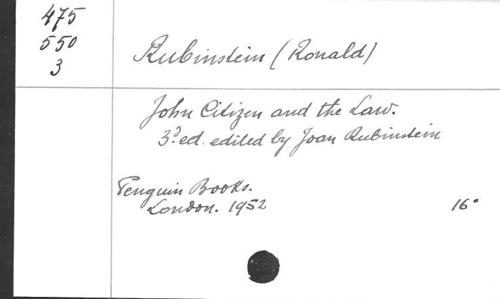 475
550
3
Rubinstein (Ronald)
John Citizen and the Law.
3.d ed. edited by Joan Rubinstein
Penguin Books.
London. 1952 16°